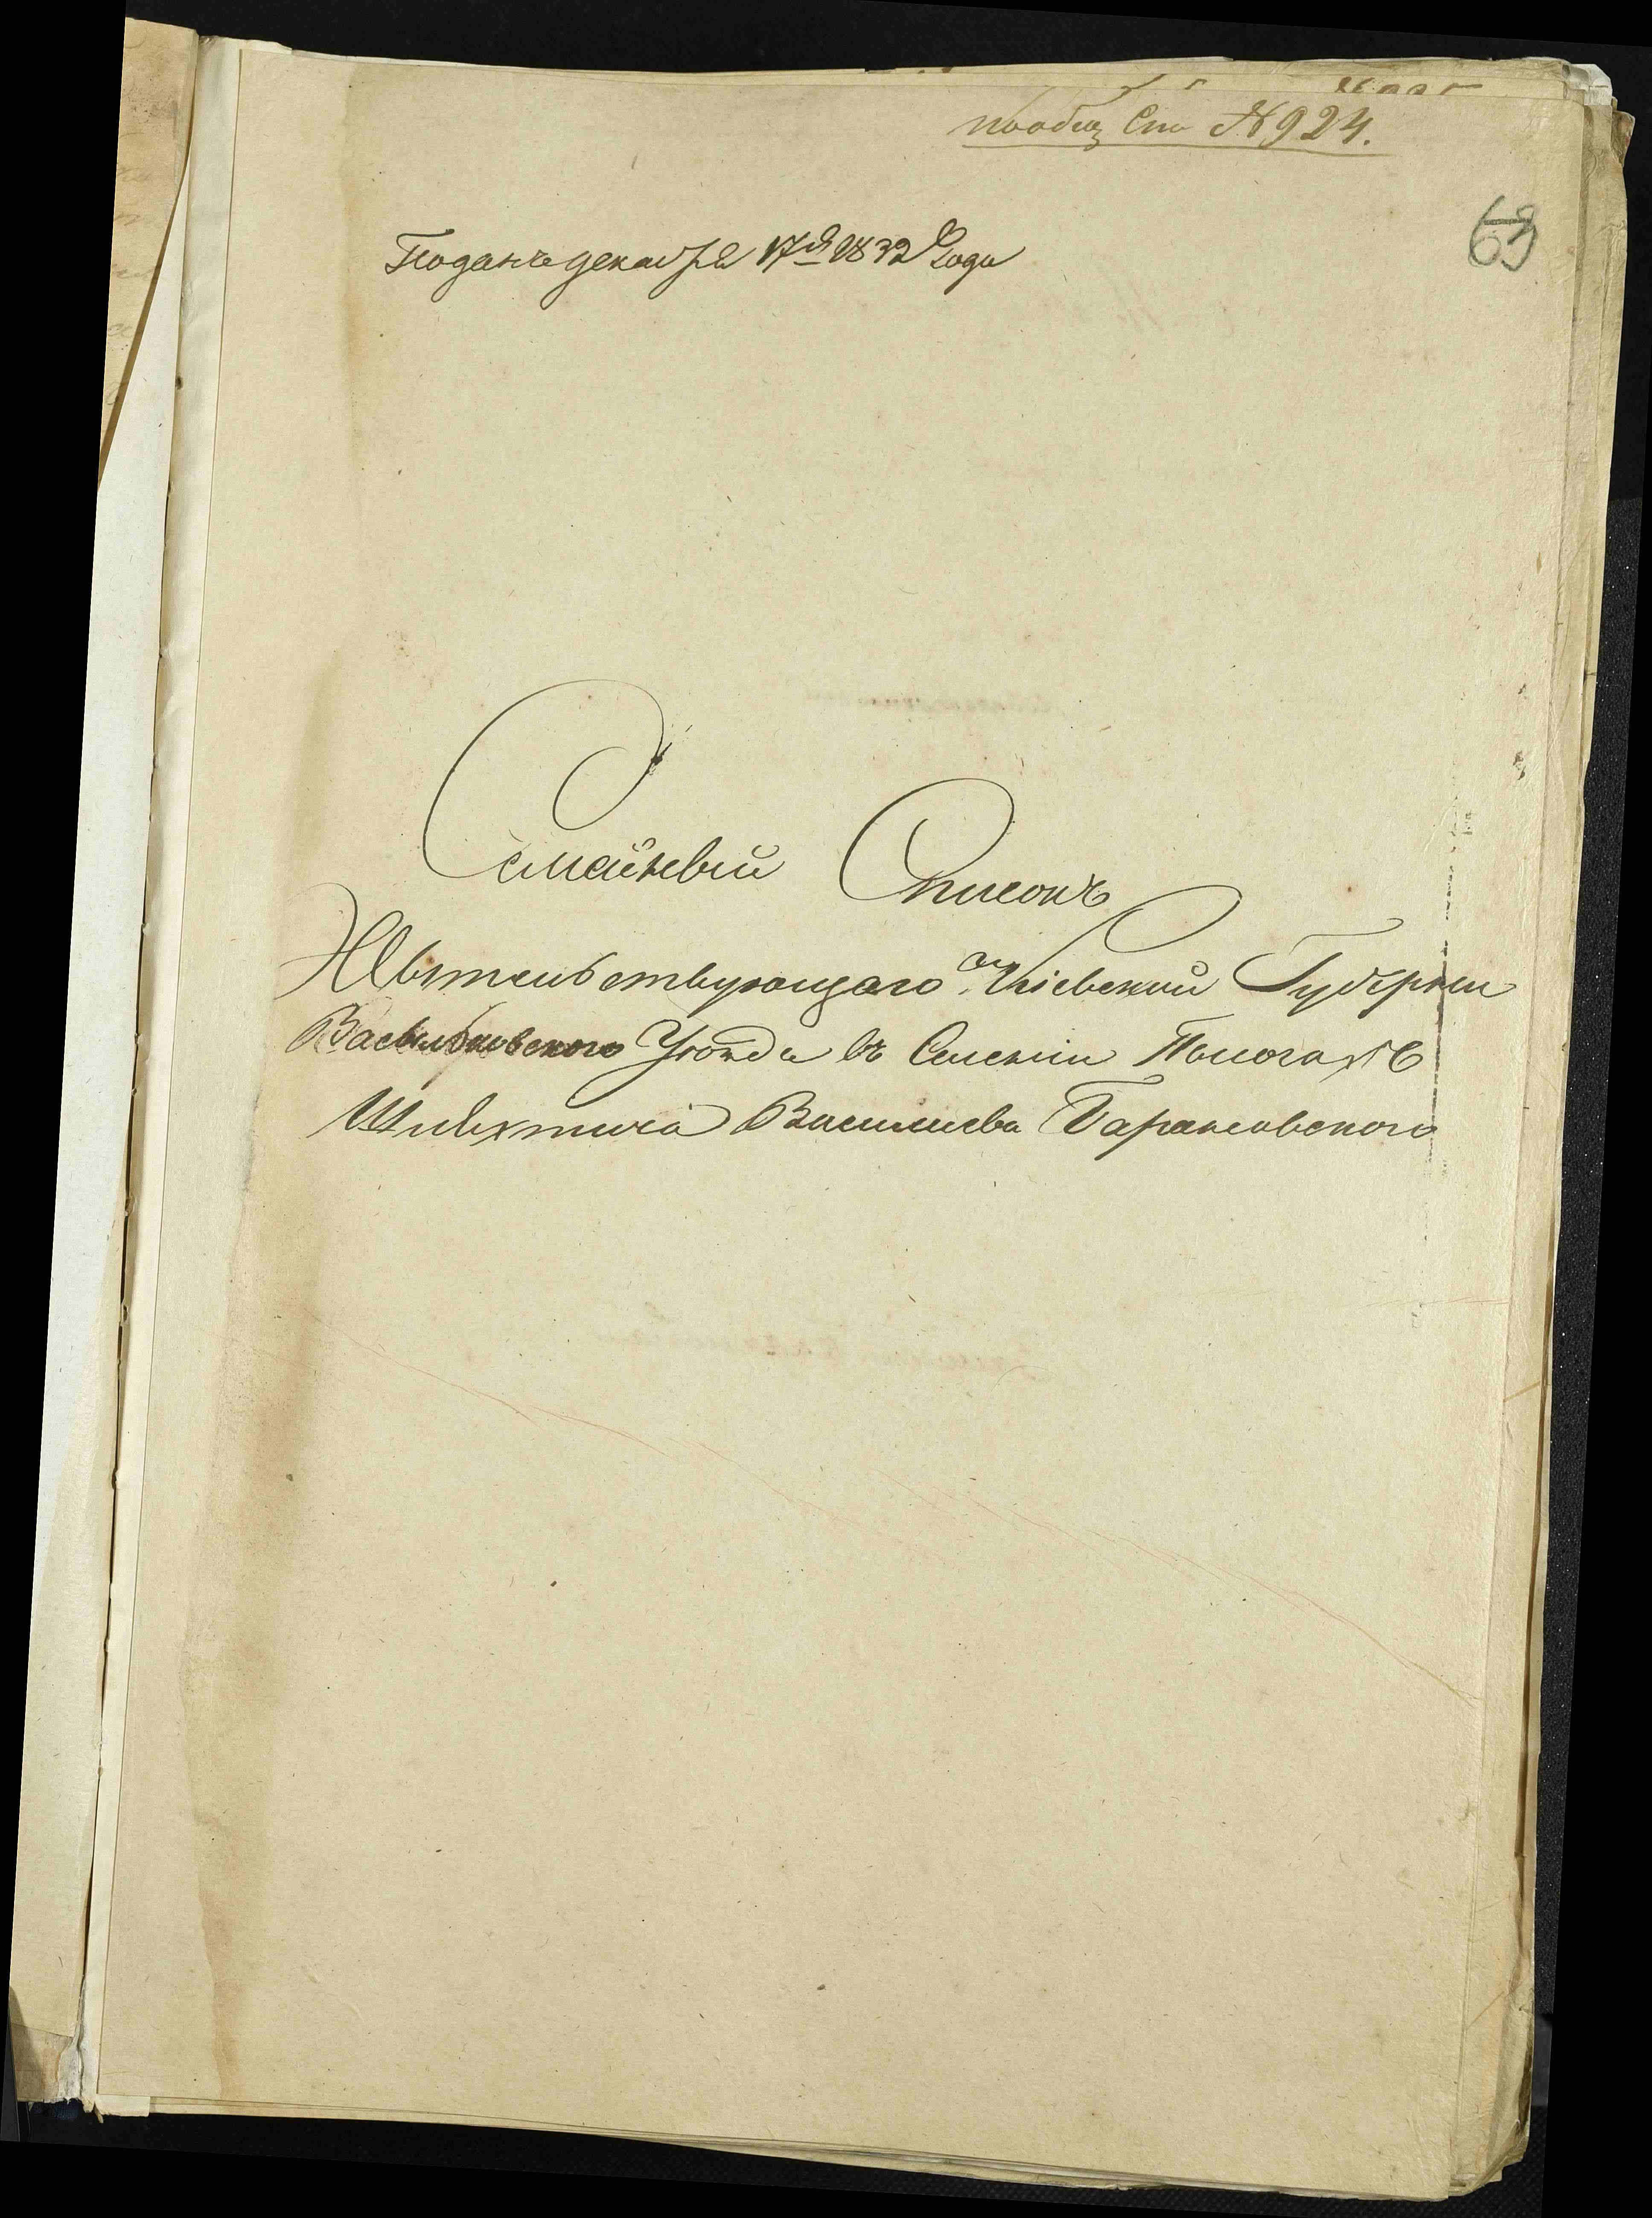 пообщ Спи № 924.
63
Поданъ декабря 17го 1832 Года
Семейный Списокъ
Жытельствующаго Кіевской Губерніи
Васыльковского Уезда въ Селеніи Пологахъ
Шляхтича Василиева Барановского